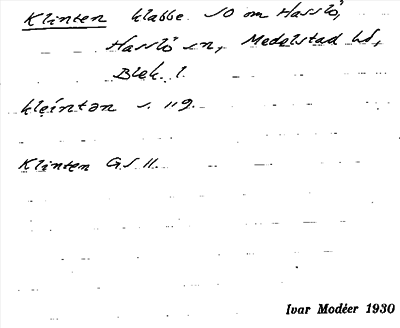 Klinten klabbe SO om Hasslö,
Hasslö sn, Medelstad hd,
Blek. l.
kleintən s. 119.
Klinten GS 11.
Ivar Modéer 1930